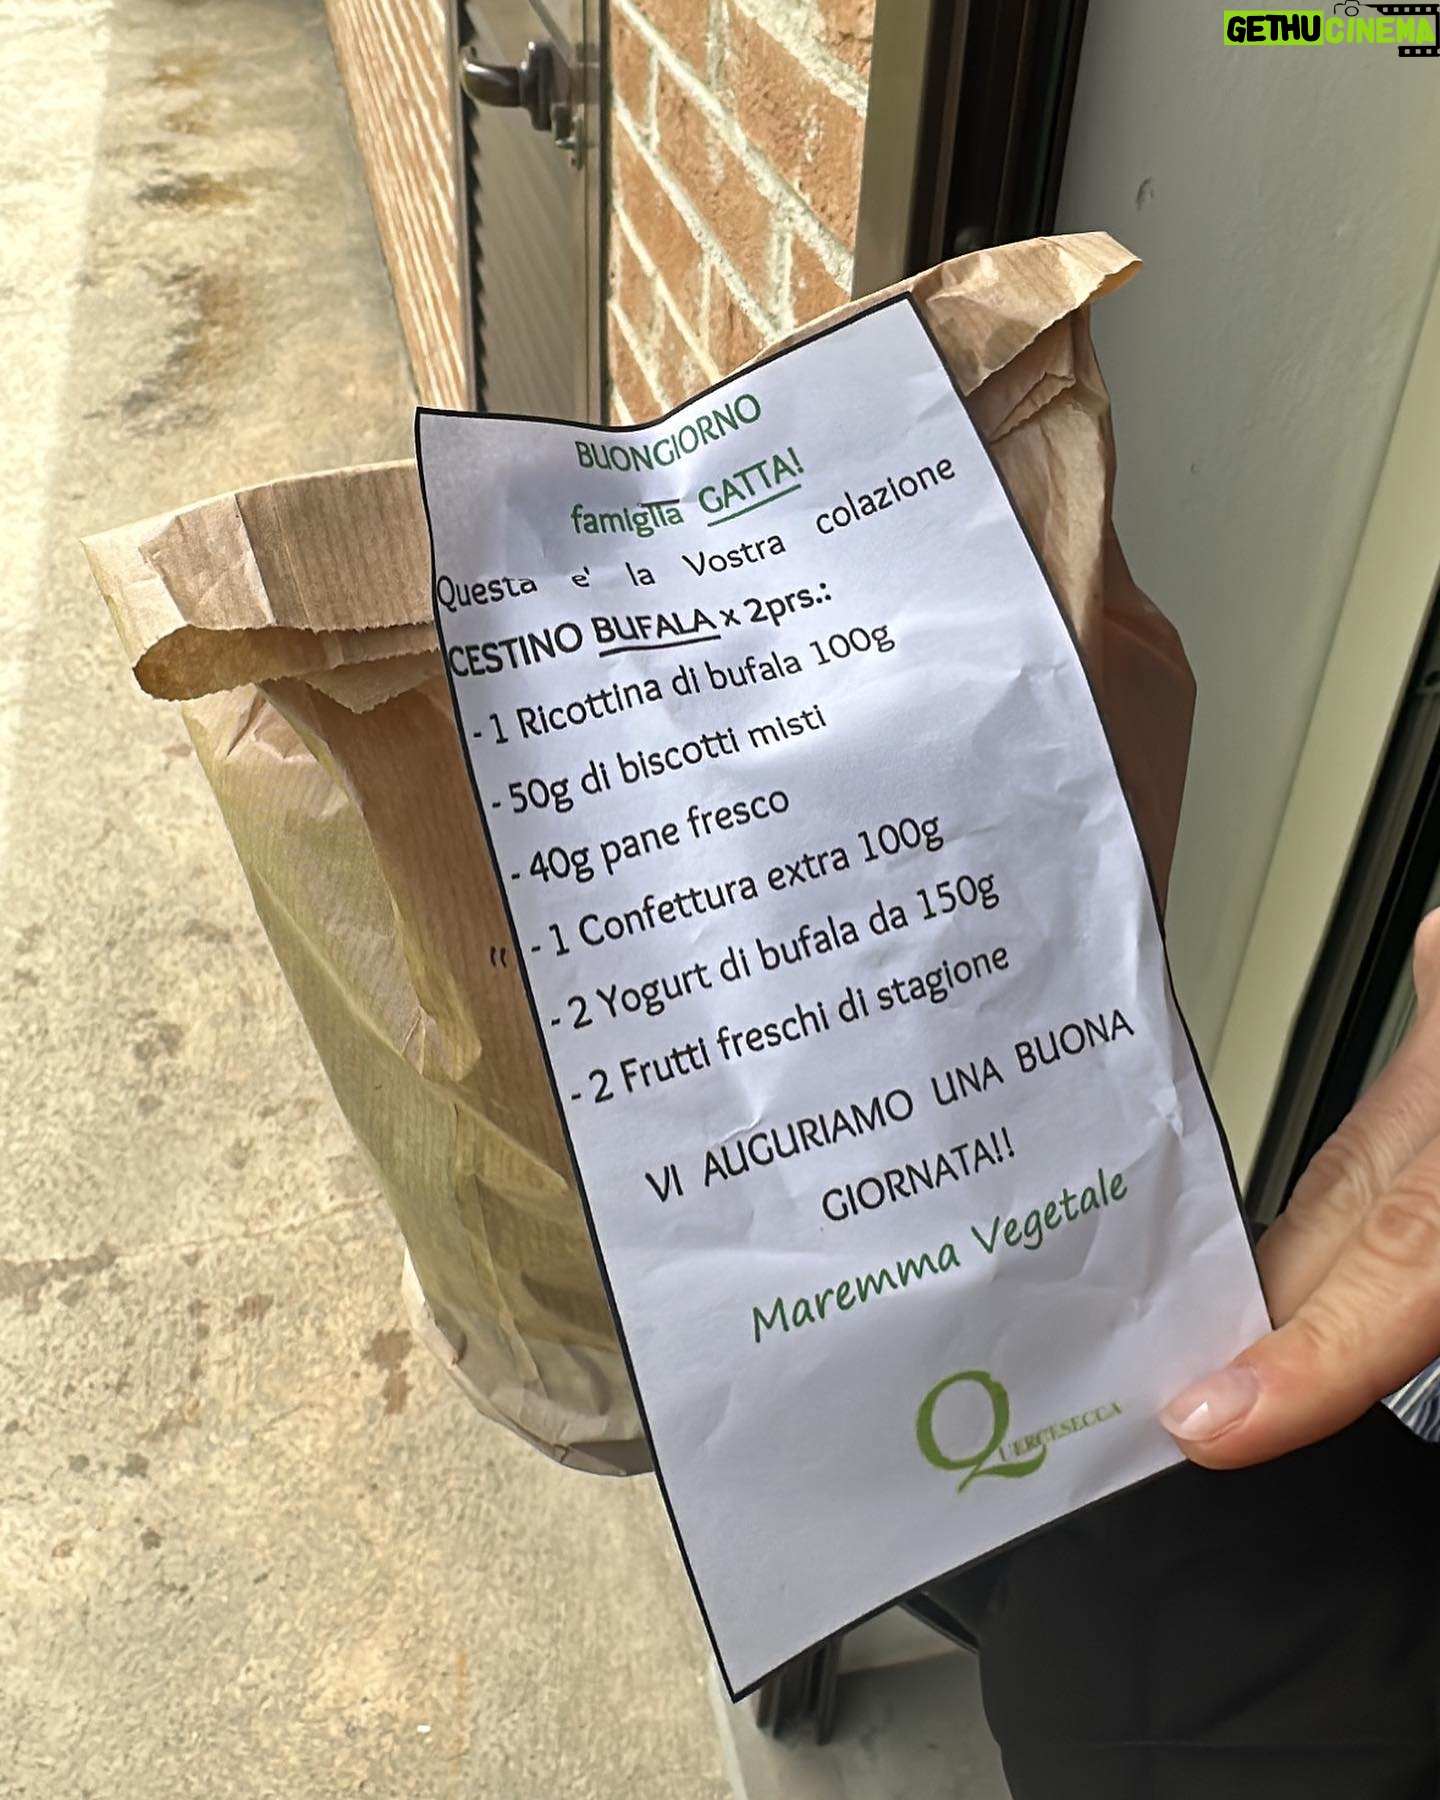 GETHUCINEMA
BUONGIORNO
famiglia GATTA!
Questa e' la Vostra colazione
CESTINO BUFALA x 2prs.:
- 1 Ricottina di bufala 100g
- 50g di biscotti misti
- 40g pane fresco
- 1 Confettura extra 100g
- 2 Yogurt di bufala da 150g
- 2 Frutti freschi di stagione
VI AUGURIAMO UNA BUONA
GIORNATA!!
Maremma Vegetale
QUERCESECCA